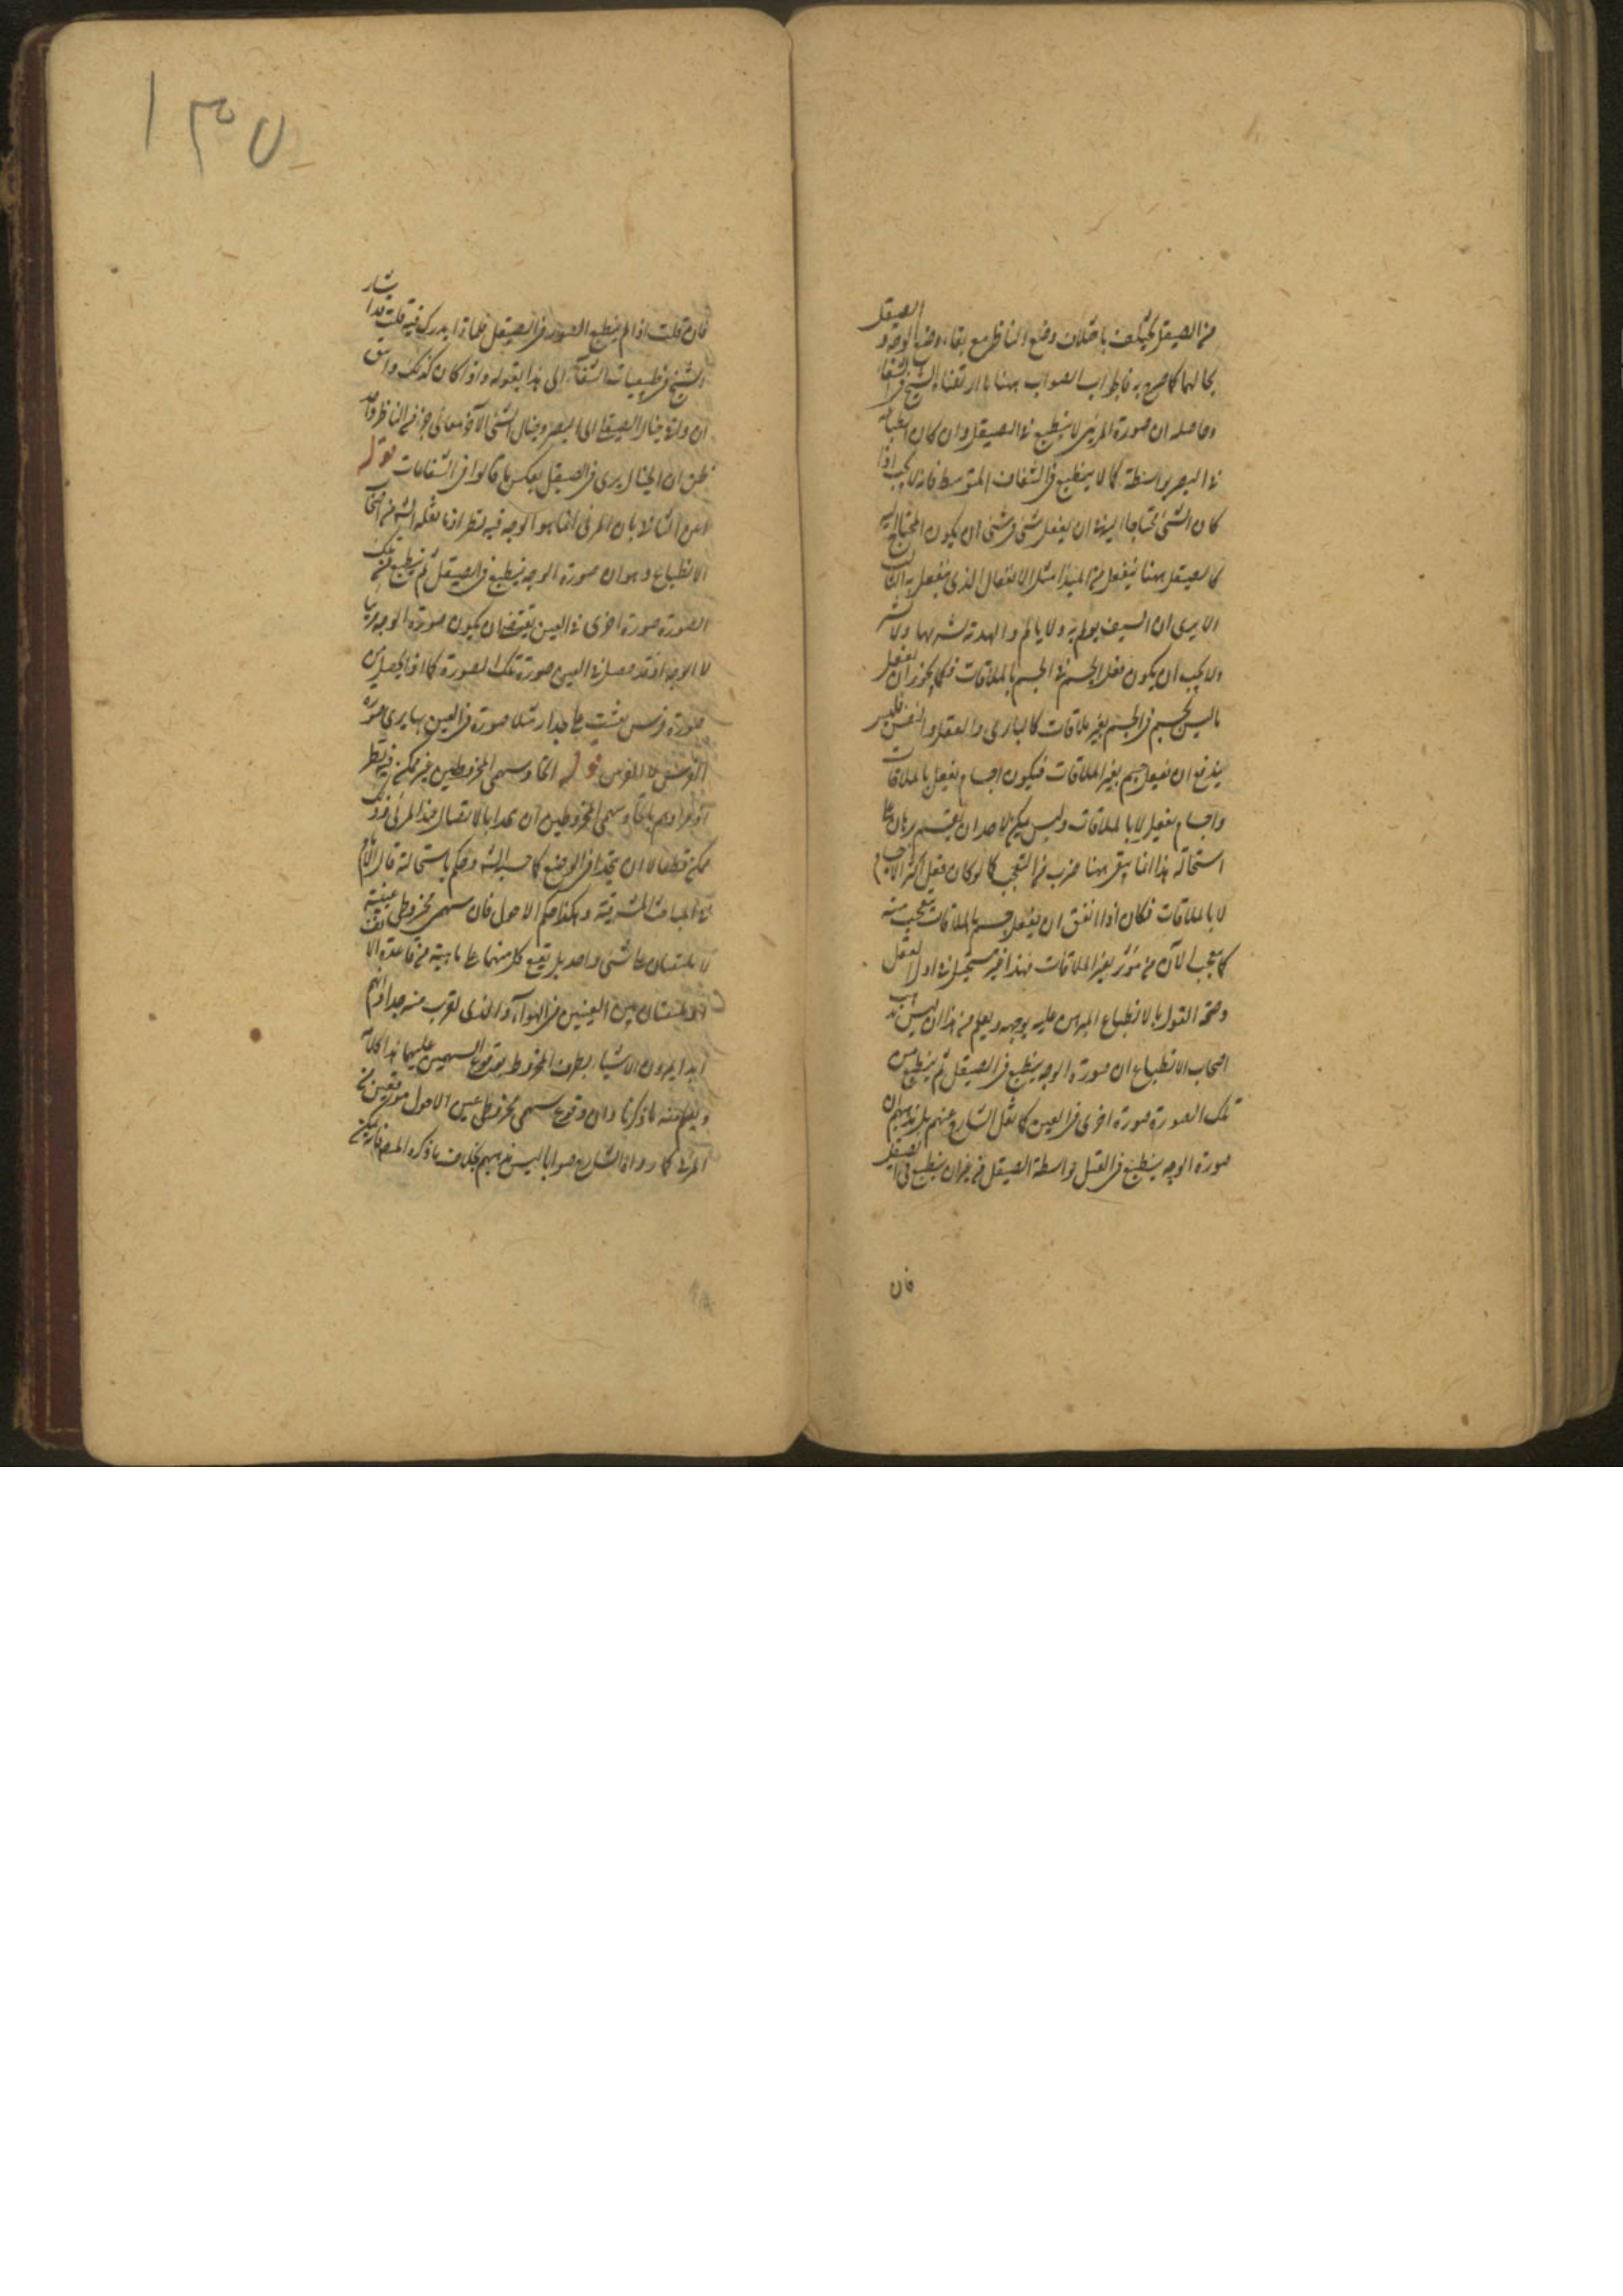 من الصيقل يختلف باختلاف وضع الناظر مع بقاء وضع الوجه و الصيقل
بحالهما كما صرح به فالجواب الصواب ههنا ما ارتضاه الشيخ في الشفا
وحاصله ان صورة المرئى لا ينطبع في الصيقل وان كان انطباعه
في البصر بواسطته كما لا ينطبع في الشفاف المتوسط فانه لا يجب اذا
كان الشئ محتاجا اليه في ان يفعل شئ في شئ ان يكون المحتاج اليه
كالصيقل ههنا ينفعل من المبدأ مثل الانفعال الذى ينفعل به
الا يرى ان السيف يولم به ولا يألم
ولا يجب ان يكون فعل الجسم في الجسم بالملاقات فكما يجوز ان يفعل
ما ليس بجسم في الجسم بغير ملاقات كالبارى والعقل والنفس فليس
ببدع ان يفعل جسم بغير الملاقات فيكون اجسام يفعل بالملاقات
واجسام يفعل لا بالملاقات وليس يمكن لاحد ان يقيم برهان على
استحالة هذا انما يبقى ههنا ضرب من التعجب كما لو كان فعل اكثر الاجسام
لا بالملاقات فكان اذا اتفق ان يفعل جسم بالملاقات يتعجب منه
كما يعجب الآن من مؤثر بغير الملاقات فهذا غير مستحيل في اول العقل
وصحة القول بالانطباع المبرهن عليه يوجبه ويعلم من هذا ان ليس مذهب
اصحاب الانطباع ان صورة الوجه ينطبع في الصيقل ثم ينطبع من
تلك الصورة صورة اخرى في العين كما نقل الشارح عنهم بل مذهبهم ان
صورة الوجه ينطبع في بواسطة الصيقل من غير ان ينطبع في الصيقل
فان
١٣٥
فان قلت اذا لم ينطبع الصورة في الصيقل فلماذا يدرك فيه قلت قد اشار
الشيخ في طبيعيات الشفاء الى هذا بقوله واذا كان كذلك واتفق
ان خيال الصيقل الى البصر وخيال الشئ الآخر معا في جزء من الناظر واحد
ظن ان الخيال يرى في الصيقل بعكس ما قالوا في الشفافات قوله
بان المرئى انما هو الوجه فيه نظر اذ ما نقله الشيخ من اصحاب
الانطباع وهو ان صورة الوجه ينطبع في الصيقل ثم ينطبع من تلك
الصورة صورة اخرى في العين يقتضى ان يكون صورة الوجه مرئيا
لا الوجه اذ قد حصل في العين صورة تلك الصورة كما اذا يحصل من
صورة فرس نقشت على جدار مثلا صورة في العين بها يرى صورة
الفرس لا الفرس قوله اتحاد سهمى المخروطين غير ممكن فيه نظر
اذ مرادهم باتحاد سهمى المخروطين ان يتحدا بالاتصال عند المرئى وذلك
ممكن قطعا لا ان يتحدا في الوضع كما حسبه الش وحكم باستحالته قال الامام
في المباحث المشرقية وهكذا حكم الاحول فان سهمى مخروطى عينيه
لا يلتقيان على شئ واحد بل يقع كل منهما على ما يليه من قاعدة الا
بين العينين في الهواء والذى يقرب منه جدا فانهم
ابدا يرون الاشياء بطرف المخروط بوقوع السهمين عليهما هذا كلامه
ويعلم منه ما ذكرنا وان وقوع سهمى مخروطى عينى الاحول موقعين من
المرئى كما رواه الشارح صوابا ليس مذهبهم بخلاف ما ذكره المص فانه يمكن